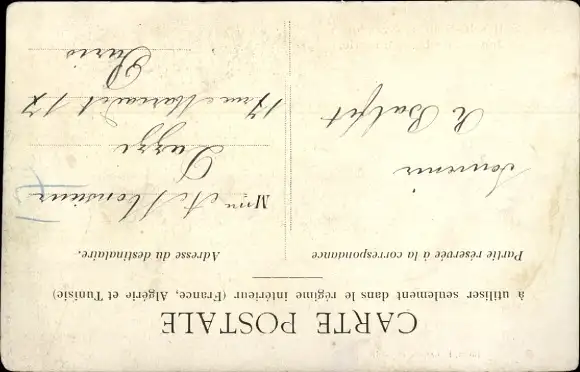 CARTE POSTALE
à utiliser seulement dans le régime intérieur (France, Algérie et Tunisie)
Partie réservée à la correspondance
Souvenir
Adresse du destinataire.
Mme et Monsieur
17 rue Marcadet 17
Paris